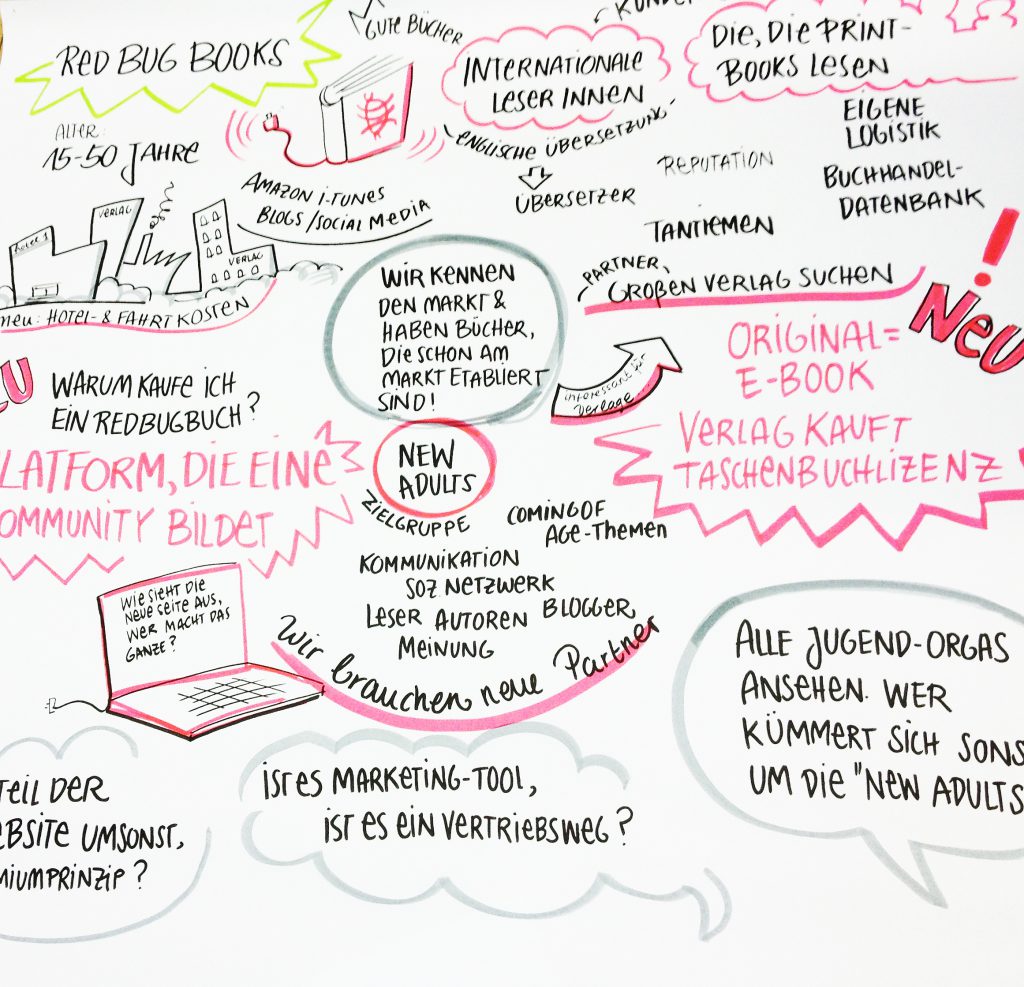 GUTE BÜCHER
RED BUG BOOKS
INTERNATIONALE
LESER INNEN
DIE, DIE PRINT-
BOOKS LESEN
ALTER:
15-50 JAHRE
ENGLISCHE ÜBERSETZUNG
ÜBERSETZER
REPUTATION
TANTIEMEN
EIGENE
LOGISTIK
BUCHHANDEL-
DATENBANK
AMAZON i-TUNES
BLOGS / SOCIAL MEDIA
VERLAG
HOTEL
VERLAG
neu: HOTEL- & FAHRTKOSTEN
WIR KENNEN
DEN MARKT &
HABEN BÜCHER,
DIE SCHON AM
MARKT ETABLIERT
SIND!
PARTNER,
GROßEN VERLAG SUCHEN
NEU!
interessant für
Verlage
ORIGINAL=
E-BOOK
VERLAG KAUFT
TASCHENBUCHLIZENZ
WARUM KAUFE ICH
EIN REDBUGBUCH?
LATFORM, DIE EINE
OMMUNITY BILDET
NEW
ADULTS
ZIELGRUPPE
COMING OF
AGE-THEMEN
KOMMUNIKATION
SOZ NETZWERK
LESER AUTOREN BLOGGER
MEINUNG
Wir brauchen neue Partner
WIE SIEHT DIE
NEUE SEITE AUS,
WER MACHT DAS
GANZE?
TEIL DER
EBSITE UMSONST,
MIUMPRINZIP?
IST ES MARKETING-TOOL,
IST ES EIN VERTRIEBSWEG?
ALLE JUGEND-ORGAS
ANSEHEN. WER
KÜMMERT SICH SONS
UM DIE "NEW ADULTS